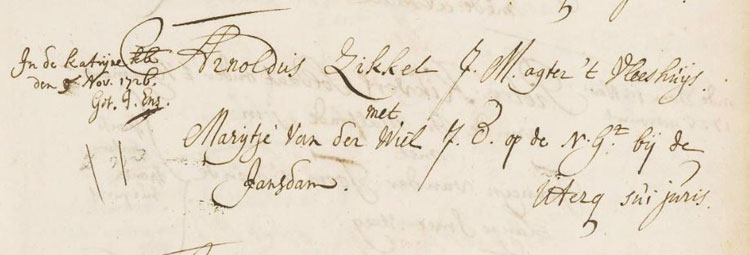 In de Katrijne kk.
den 5 Nov. 1726.
Get. J. Ens.
Arnoldus Zikkel J. M. agter 't Vleeshuijs.
met
Marijtje Van der Wiel J. D. op de N. Gt. bij de
Jansdam.
Uterq sui juris.